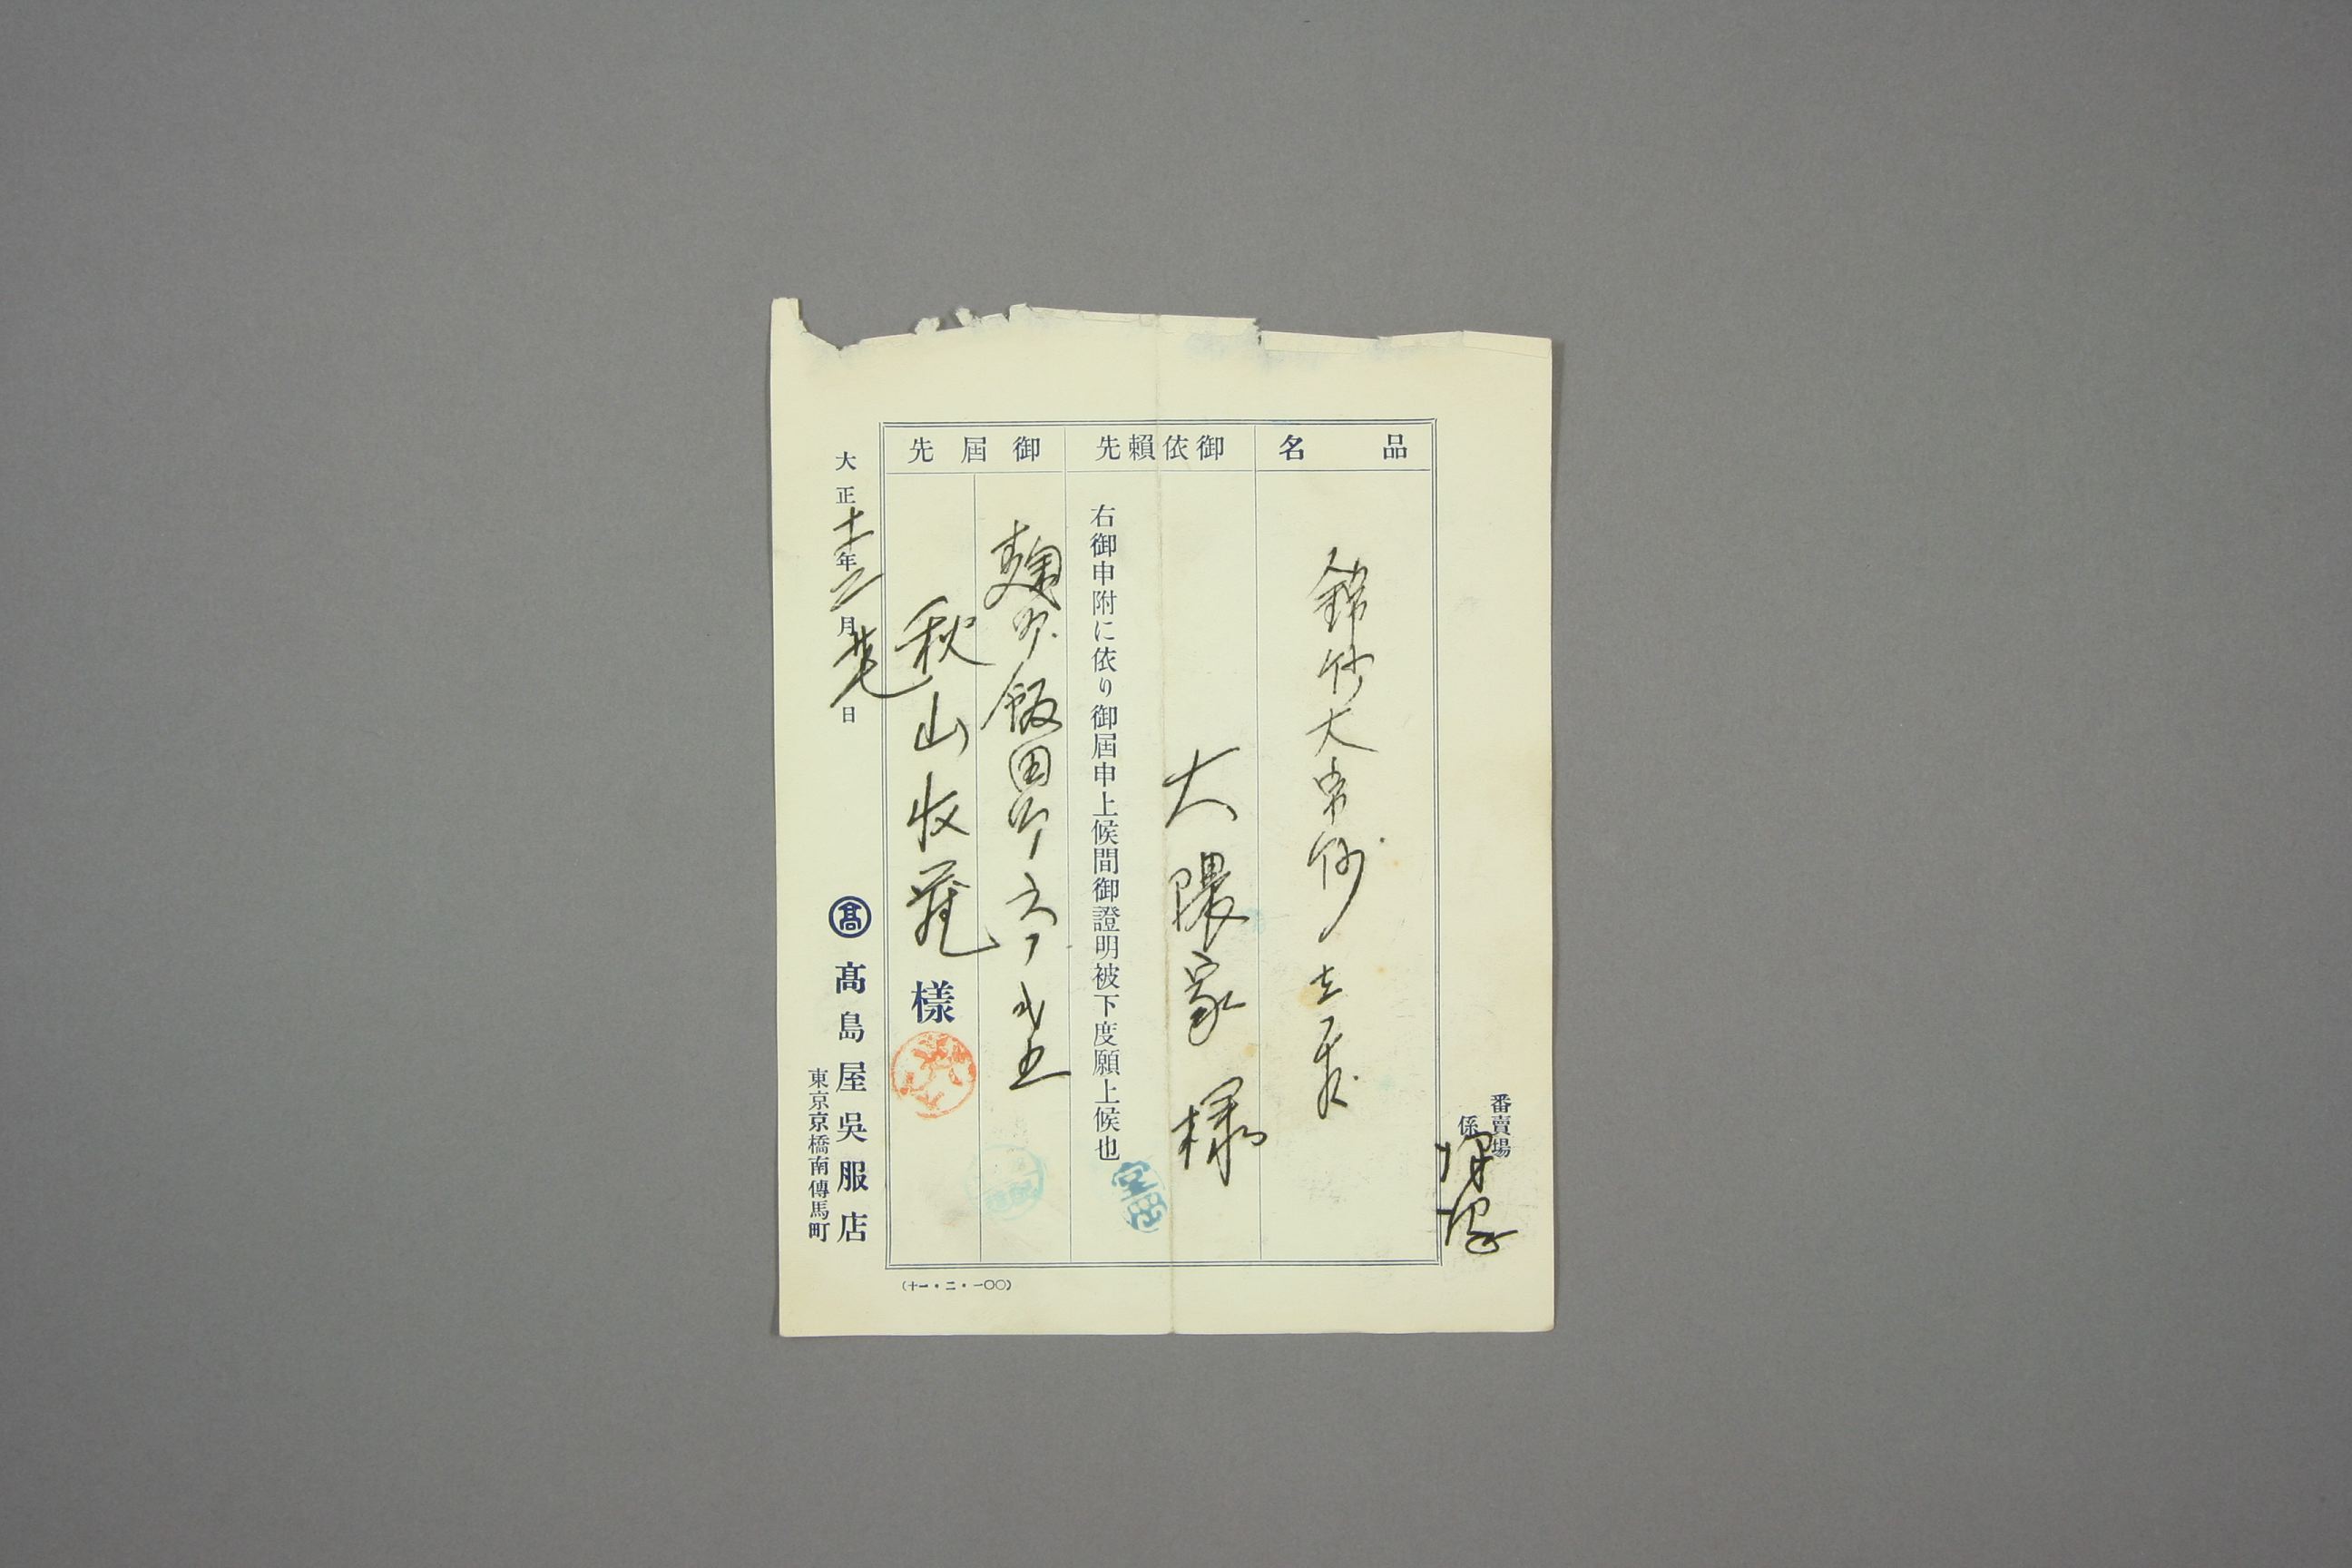 番賣場
係
品名
錦紗大帛紗 壱
御依賴先
大隈家 様
右御申附に依り御屆申上候間御證明被下度願上候也
宮田
御屆先
麹町 飯田町六ノ弐五
秋山收蔵 樣
大正十一年二月廿 日
高
髙島屋吳服店
東京京橋南傳馬町
(十一・二・一〇〇)